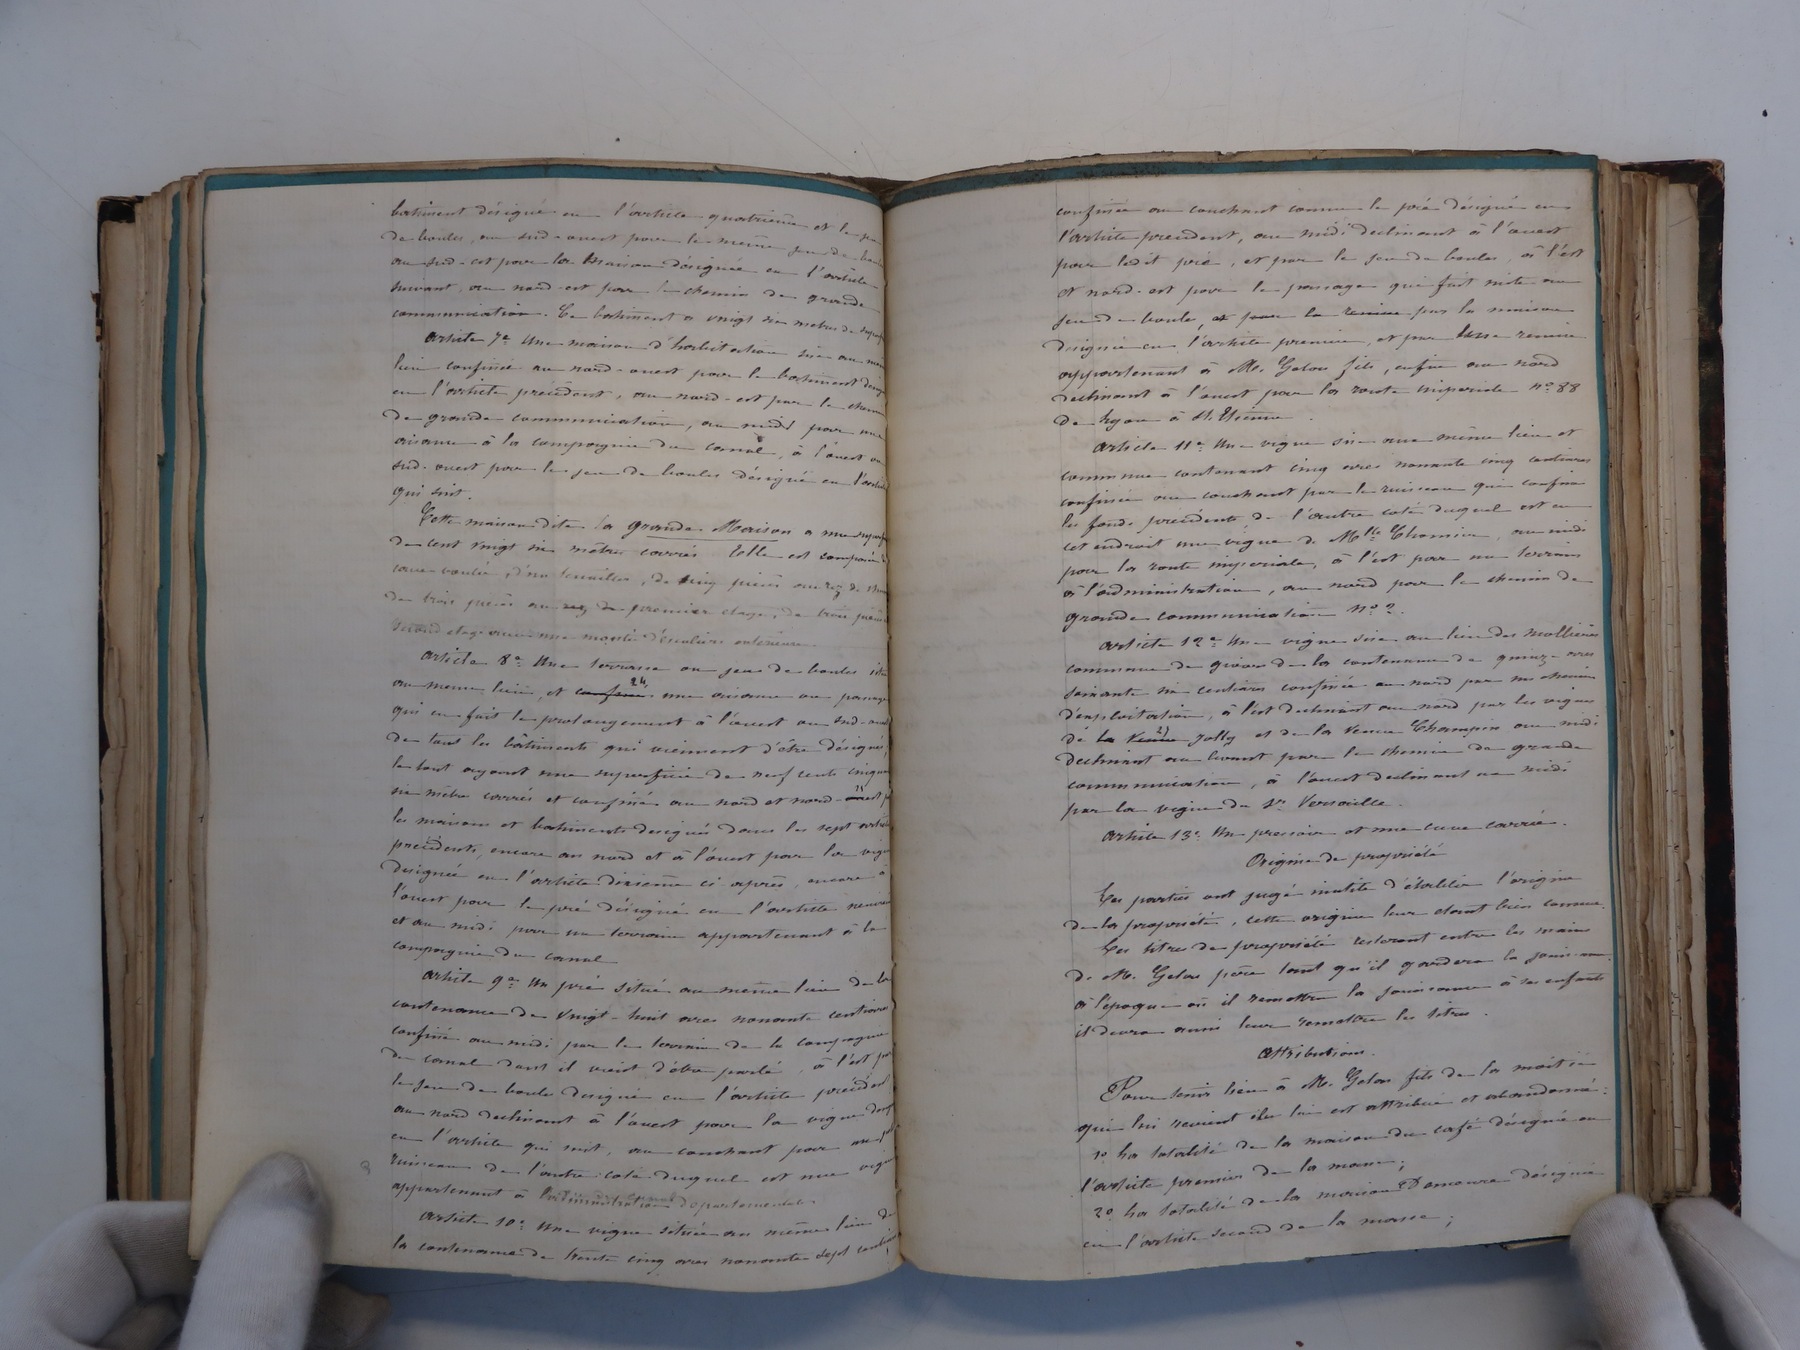 bâtiment désigné en l'article quatrième et le jeu
de boules, au sud-ouest par le même jeu de boules
au sud-est par la maison désignée en l'article
suivant, au nord-est par le chemin de grande
communication. Ce bâtiment a vingt six mètres de superficie
Article 7e Une maison d'habitation sise au même
lieu confinée au nord-ouest par le bâtiment désigné
en l'article précédent, au nord-est par le chemin
de grande communication, au midi par une
aisance à la compagnie du canal, à l'ouest au
sud-ouest par le jeu de boules désigné en l'article
qui suit.
Cette maison dite la grande Maison a une superficie
de cent vingt six mètres carrés Elle est composée de
cave voutée, d'un cuvier, de cinq pièces au rez de
de trois pièces au rez de premier étage, de trois pièces
second étage avec une montée d'escaliers extérieure.
Article 8e Une terrasse ou jeu de boules située
au même lieu, et confinée une aisance ou passage
qui en fait le prolongement à l'ouest au sud-ouest
de tous les bâtiments qui viennent d'être désignés,
le tout ayant une superficie de neuf cents cinquante
six mètres carrés et confiné au nord et nord-est par
les maisons et bâtiments désignés dans les sept articles
précédents, encore au nord et à l'ouest par la vigne
désignée en l'article dixième ci après, encore à
l'ouest par le pré désigné en l'article neuvième
et au midi par un terrain appartenant à la
compagnie du canal
Article 9e Un pré situé au même lieu de la
contenance de vingt-huit ares nonante centiares
confiné au midi par le terrain de la compagnie
du canal dont il vient d'être parlé, à l'est par
le jeu de boule désigné en l'article précédent
au nord declinant à l'ouest par la vigne désignée
en l'article qui suit, au couchant par un
ruisseau de l'autre coté duquel est une vigne
appartenant à l'administration départementale
Article 10e Une vigne située au même lieu de
la contenance de trente cinq ares nonante sept centiares
confinée au couchant comme le pré désigné en
l'article précédent, au midi declinant à l'ouest
par ledit pré, et par le jeu de boules, à l'est
et nord-est par le passage qui fait suite au
jeu de boule, et par la remise par la maison
désignée en l'article premier, et par une remise
appartenant à M. Gelas fils, enfin au nord
declinant à l'ouest par la route impériale no 88
de Lyon à St. Etienne.
Article 11e Une vigne sise aux même lieu et
commune contenant cinq ares nonante cinq centiares
confinée au couchant par le ruisseau qui confine
les fonds précédents, de l'autre coté duquel est en
cet endroit une vigne de Mlle au midi
par la route impériale, à l'est par un terrain
à l'administration, au nord par le chemin de
grande communication no 2.
Article 12e Une vigne sise au lieu des mollières
commune de givors de la contenance de quinze ares
soixante six centiares confinée au nord par un chemin
d'exploitation, à l'est declinant au nord par les vignes
de la Veuve Jolly et de la Veuve Champin au midi
declinant au levant par le chemin de grande
communication, à l'ouest declinant au midi
par la vigne du Sr Versaille.
Article 13e Un pressoir et une cuve carrée.
Origine de propriété
Les parties ont jugé inutile d'établir l'origine
de la propriété, cette origine leur étant bien connue.
Les titres de propriété resteront entre les mains
de M. Gelas père tant qu'il gardera la jouissance
à l'époque où il remettra la jouissance à ses enfants
il devra aussi leur remettre les titres.
Attributions.
Pour tenir lieu à M. Gelas fils de la moitié
qui lui revient il lui est attribué et abandonné:
1o La totalité de la maison du café désignée en
l'article premier de la masse;
2o La totalité de la maison Damoure désignée
en l'article second de la masse;